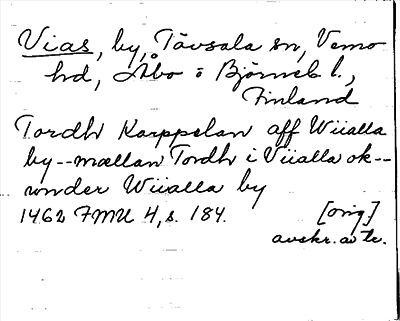 Vias, by, Tövsala sn, Vemo
hd, Åbo o Björneb l.,
Finland
Tordh Karppelan aff Wiialla
by--mællan Tordh i Viialla ok--
vnder Wiialla by
1462 FMU 4, s. 184. [orig]
avskr. av tr.